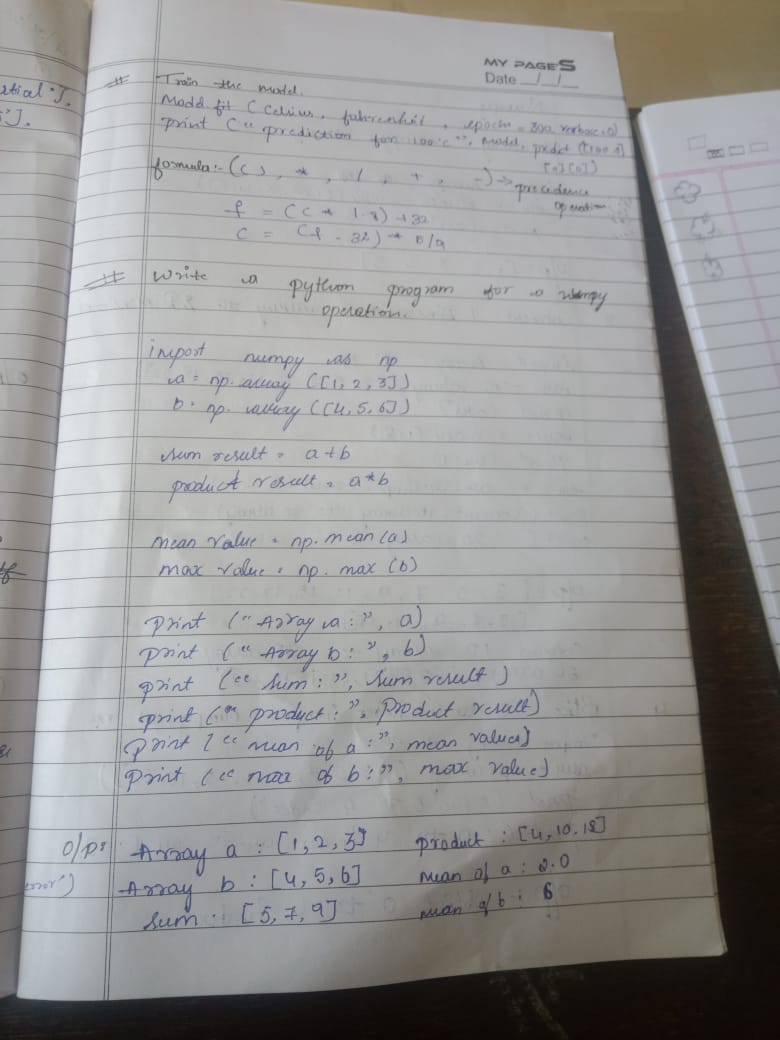 MY PAGES
Date __/__/__
# Train the model.
Model. fit (Celsius, fahrenhit, epochs = 300, verbose = 0)
print (" prediction for 100°c ", model. predict ([100.0])
[0][0])
formula:- (( ), *, /, +, -) → precedence
operation
f = (c * 1.8) + 32
c = (f - 32) * 5/9
# Write a python program for a numpy
operation.
import numpy as np
a = np. array ([1, 2, 3])
b = np. array ([4, 5, 6])
sum result = a + b
product result = a * b
mean value = np. mean (a)
max value = np. max (b)
print (" Array a : ", a)
print (" Array b : ", b)
print (" Sum : ", Sum result )
print (" product : ", Product result)
Print (" mean of a : ", mean values)
Print (" max of b : ", max value)
O/P: Array a : [1, 2, 3] product : [4, 10, 18]
Array b : [4, 5, 6] mean of a : 2.0
Sum : [5, 7, 9] mean of b : 6